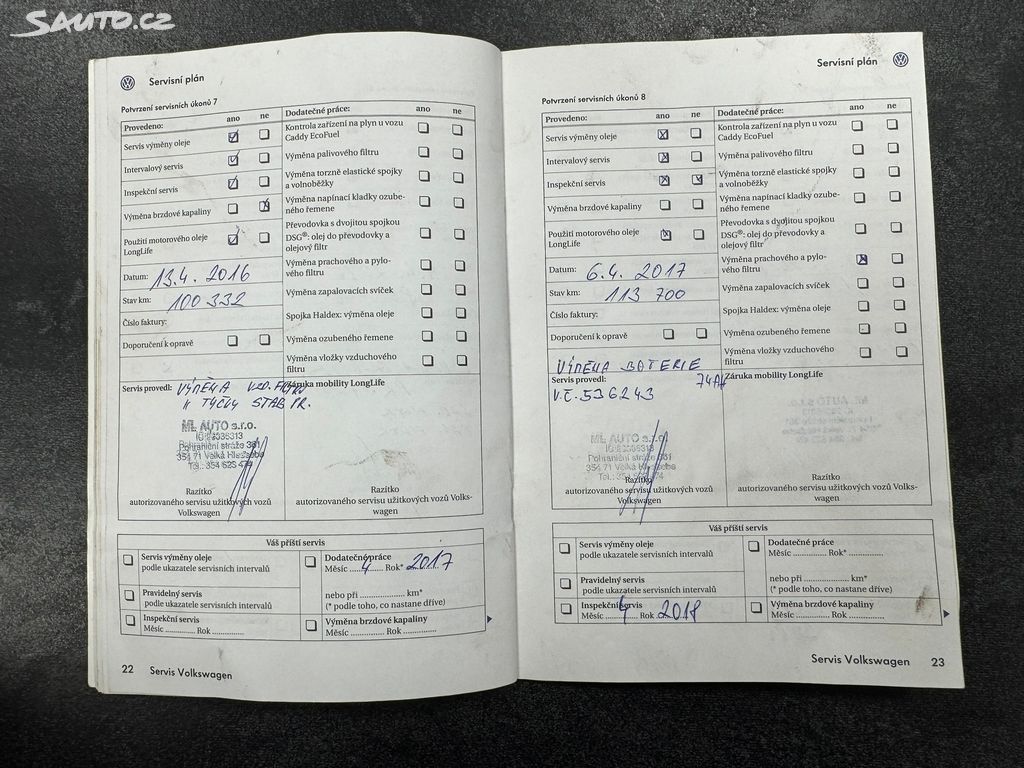 SAUTO.CZ
Servisní plán
Potvrzení servisních úkonů 7
Provedeno: ano ne
Servis výměny oleje
Intervalový servis
Inspekční servis
Výměna brzdové kapaliny
Použití motorového oleje
LongLife
Datum: 13.4. 2016
Stav km: 100 332
Číslo faktury:
Doporučení k opravě
Dodatečné práce: ano ne
Kontrola zařízení na plyn u vozu
Caddy EcoFuel
Výměna palivového filtru
Výměna torzně elastické spojky
a volnoběžky
Výměna napínací kladky ozube-
ného řemene
Převodovka s dvojitou spojkou
DSG®: olej do převodovky a
olejový filtr
Výměna prachového a pylo-
vého filtru
Výměna zapalovacích svíček
Spojka Haldex: výměna oleje
Výměna ozubeného řemene
Výměna vložky vzduchového
filtru
Servis provedl: VÝMĚNA
TYČKY STAB PR.
ML AUTO s.r.o.
Pohraniční stráže 381
354 71 Velká Hleďsebe
Razítko
autorizovaného servisu užitkových vozů
Volkswagen
Záruka mobility LongLife
Razítko
autorizovaného servisu užitkových vozů Volks-
wagen
Váš příští servis
Servis výměny oleje
podle ukazatele servisních intervalů
Pravidelný servis
podle ukazatele servisních intervalů
Inspekční servis
Měsíc ............. Rok ..............
Dodatečné práce
Měsíc ..... 4 ..... Rok* 2017
nebo při .................... km*
(* podle toho, co nastane dříve)
Výměna brzdové kapaliny
Měsíc .............. Rok ..............
22 Servis Volkswagen
Servisní plán
Potvrzení servisních úkonů 8
Provedeno: ano ne
Servis výměny oleje
Intervalový servis
Inspekční servis
Výměna brzdové kapaliny
Použití motorového oleje
LongLife
Datum: 6.4. 2017
Stav km: 113 700
Číslo faktury:
Doporučení k opravě
Dodatečné práce: ano ne
Kontrola zařízení na plyn u vozu
Caddy EcoFuel
Výměna palivového filtru
Výměna torzně elastické spojky
a volnoběžky
Výměna napínací kladky ozube-
ného řemene
Převodovka s dvojitou spojkou
DSG®: olej do převodovky a
olejový filtr
Výměna prachového a pylo-
vého filtru
Výměna zapalovacích svíček
Spojka Haldex: výměna oleje
Výměna ozubeného řemene
Výměna vložky vzduchového
filtru
VÝMĚNA BATERIE
Servis provedl:
V.Č. 536243
ML AUTO s.r.o.
Pohraniční stráže 381
354 71 Velká Hleďsebe
Razítko
autorizovaného servisu užitkových vozů
Volkswagen
Záruka mobility LongLife
Razítko
autorizovaného servisu užitkových vozů Volks-
wagen
Váš příští servis
Servis výměny oleje
podle ukazatele servisních intervalů
Pravidelný servis
podle ukazatele servisních intervalů
Inspekční servis
Měsíc .... 4 .... Rok 2018
Dodatečné práce
Měsíc .............. Rok* ..............
nebo při .................... km*
(* podle toho, co nastane dříve)
Výměna brzdové kapaliny
Měsíc .............. Rok ..............
Servis Volkswagen 23